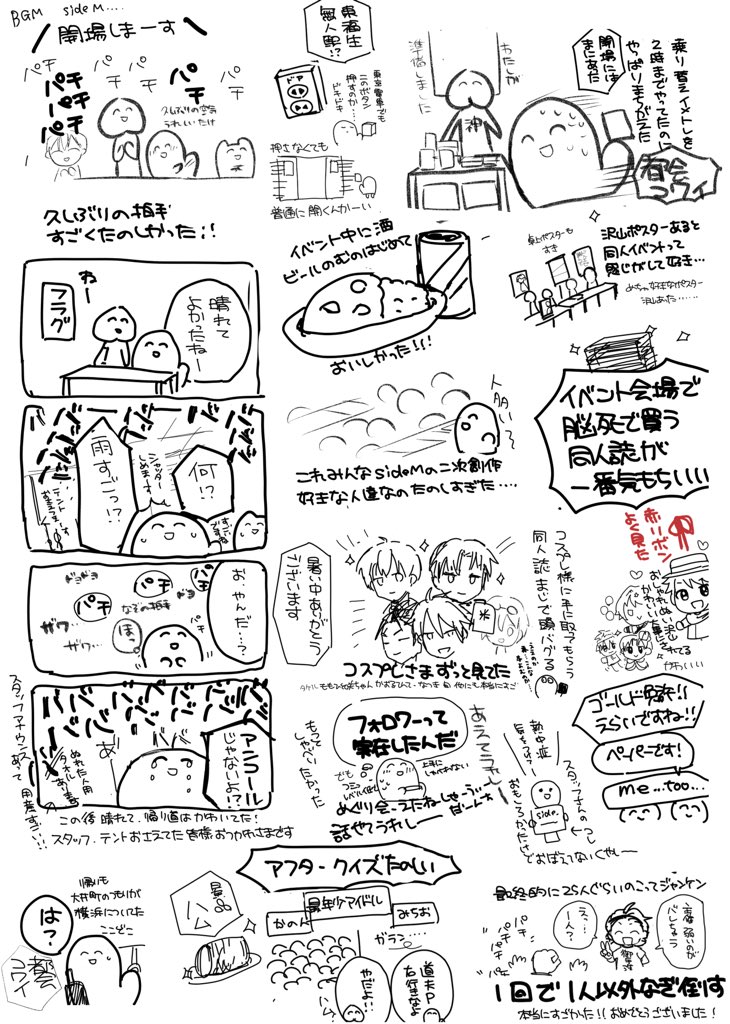 東福生
無人駅!?
ドア
東京電車でも
このボタン
押すのか…
ドキドキ
押さなくても
普通に開くんかーい
乗り替えイメトレを
2時までやってたのに
やっぱりまちがえた
開場には
まにあた
都会
コワイ
わたしが
準備しました
神
BGM sideM....
開場しまーす
パチ
パチ
パチ
パチ
パチ
パチ
パチ
久しぶりの空気
うれしいたけ
久しぶりの拍手
すごくたのしかった!!
イベント中に酒
ビールのむのはじめて
おいしかった!!
卓上ポスターも
すき
沢山ポスターあると
同人イベントって
感じがして好き…
めちゃ好きなポスター
沢山あった……
晴れて
よかったねー
わー
フラグ
人多い〜
これみんなsideMの二次創作
好きな人達なのたのしすぎた….
イベント会場で
脳死で買う
同人誌が
一番気もちいい
何!?
雨すごっ!?
シャッター
しめまーす!
お、やんだ…?
ほっ
ザワ…
ザワ…
パチ
パチ
パチ
なぞの拍手
暑い中ありがとう
ございます
コスプレさまずっと見てた
コスプレ様に手に取ってもらう
同人誌まじで脳バグる
赤いリボン
よく見た
アンコール
じゃないよ!?
あ
スタッフアナウンス
あって
ぬれた人用
タオルあり〼
用意すごい…
この後晴れて、帰り道はかわいてた!
スタッフ.テントおさえてた皆様おつかれさまです
フォロワーって
実在したんだ
あえてうれしー
でも
コミュ
レベル低い
上手に
しゃべれない
もっと
しゃべりたかった
話せてうれしー
熱中症
気をつけて〜
スタッフさんの
おもしろかった
side.
でおぼえてないくやしー
ゴールド発券!!
えらいですね!!
ペーパーです!
me...too...
アフタークイズたのしい
帰りも
大井町のつもりが
横浜についた
ここどこ
は?
都会
コワイ
景品
ハム
最年少アイドル
かのん
みちお
ガラン….
道夫P
お好きなよ
やだよ…
ハム
最終的に25人ぐらいのこってジャンケン
パチ
パチ
パチ
パチ
え…
一人?
1回で1人以外なぎ倒す
本当にすごかった!!おめでとうございました!